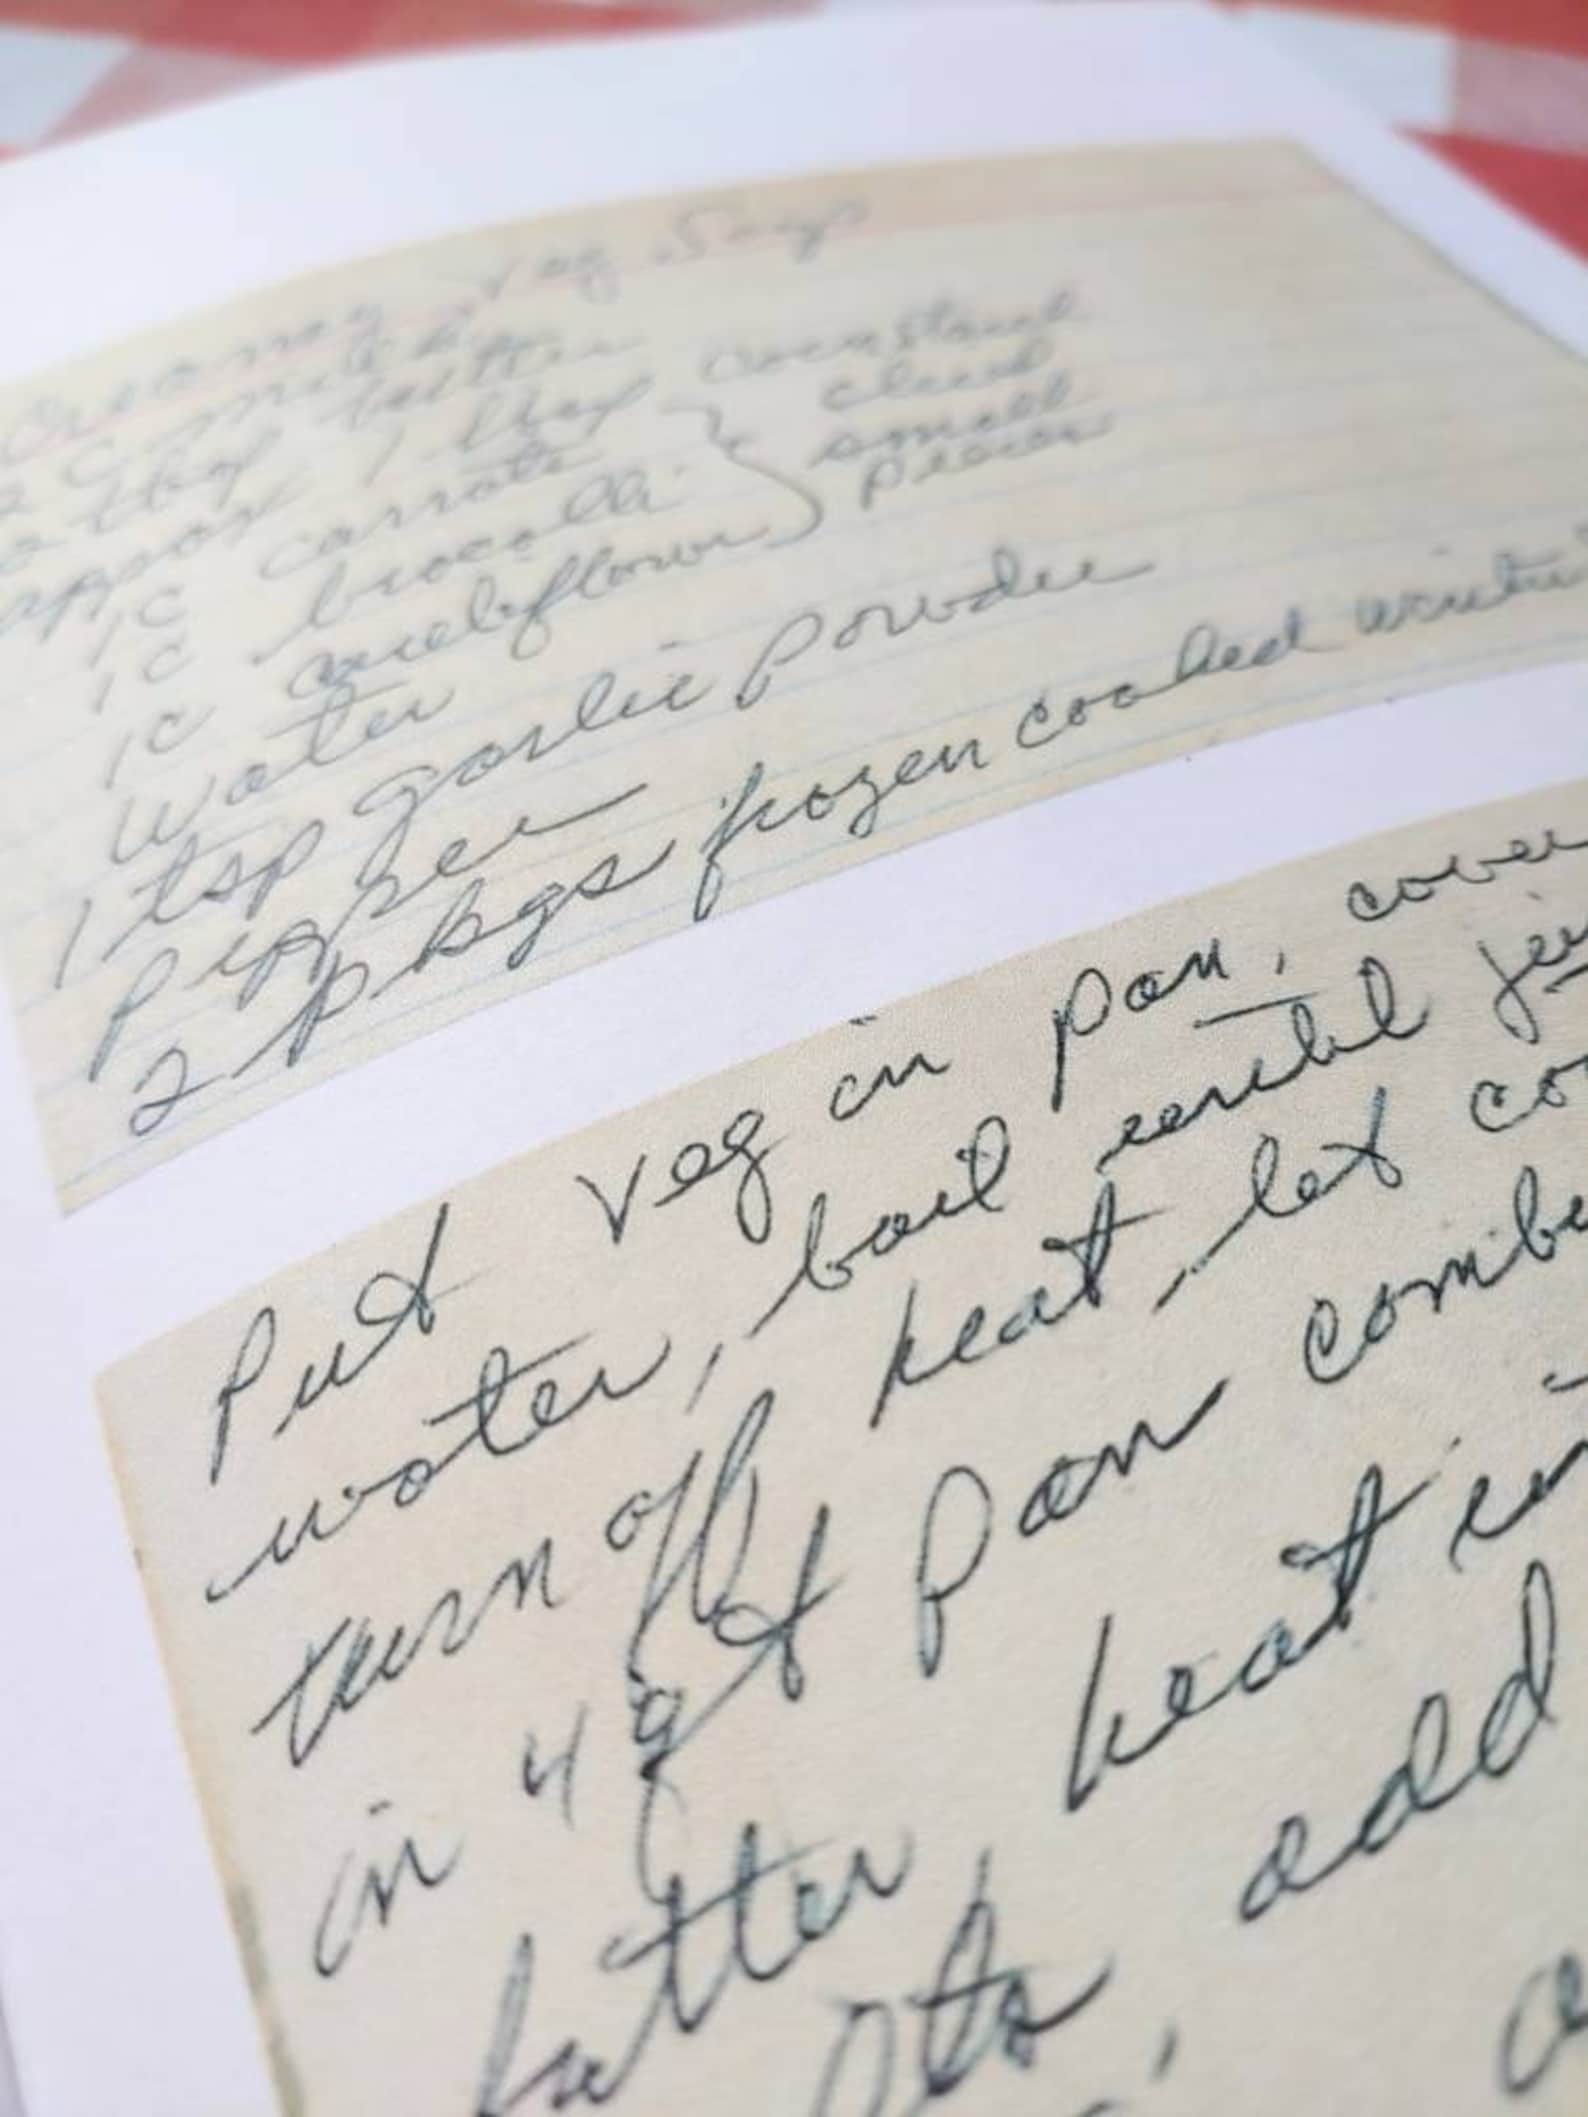 Creamy Veg Soup
2 C milk
2 tbsp butter
approx 1 tbsp cornstarch
1 C carrots
1 C brocolli
1 C cauliflower
} small pieces
water
1 tsp garlic powder
pepper
2 pkgs frozen cooked winter
Put veg in pan, cover
water, boil until
turn off heat, let
in 4 qt pan
butter, heat
add